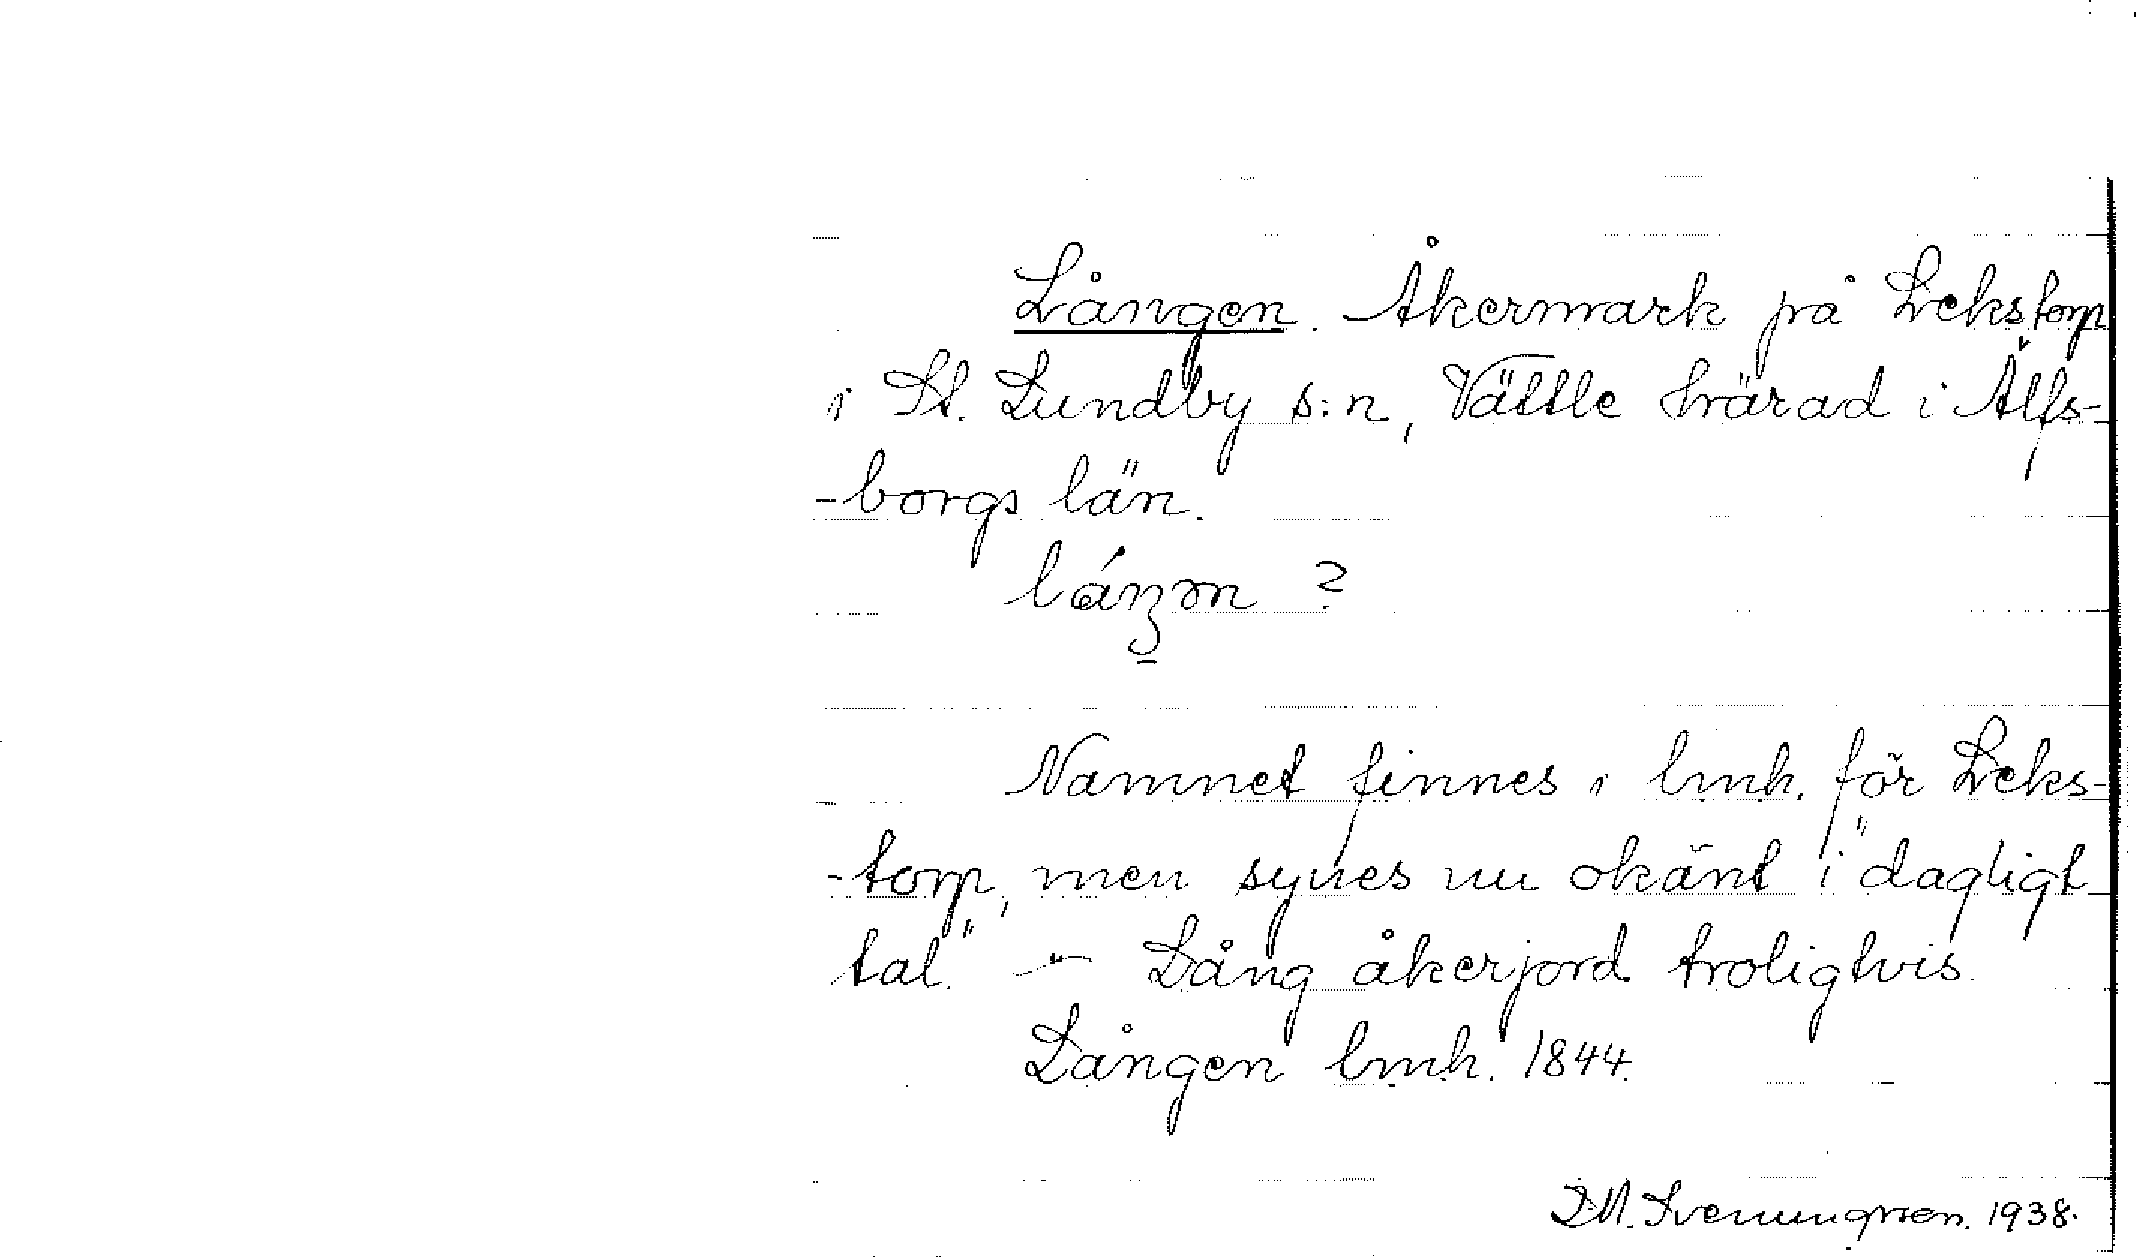 Lången. Åkermark på Lekstorp
i St. Lundby s:n, Vättle härad i Älfs-
-borgs län.
Namnet finnes i lmh. för Leks-
-torp, men synes nu okänt i "dagligt
tal." — Lång åkerjord troligtvis.
Lången lmh. 1844.
Svenungsson. 1938.